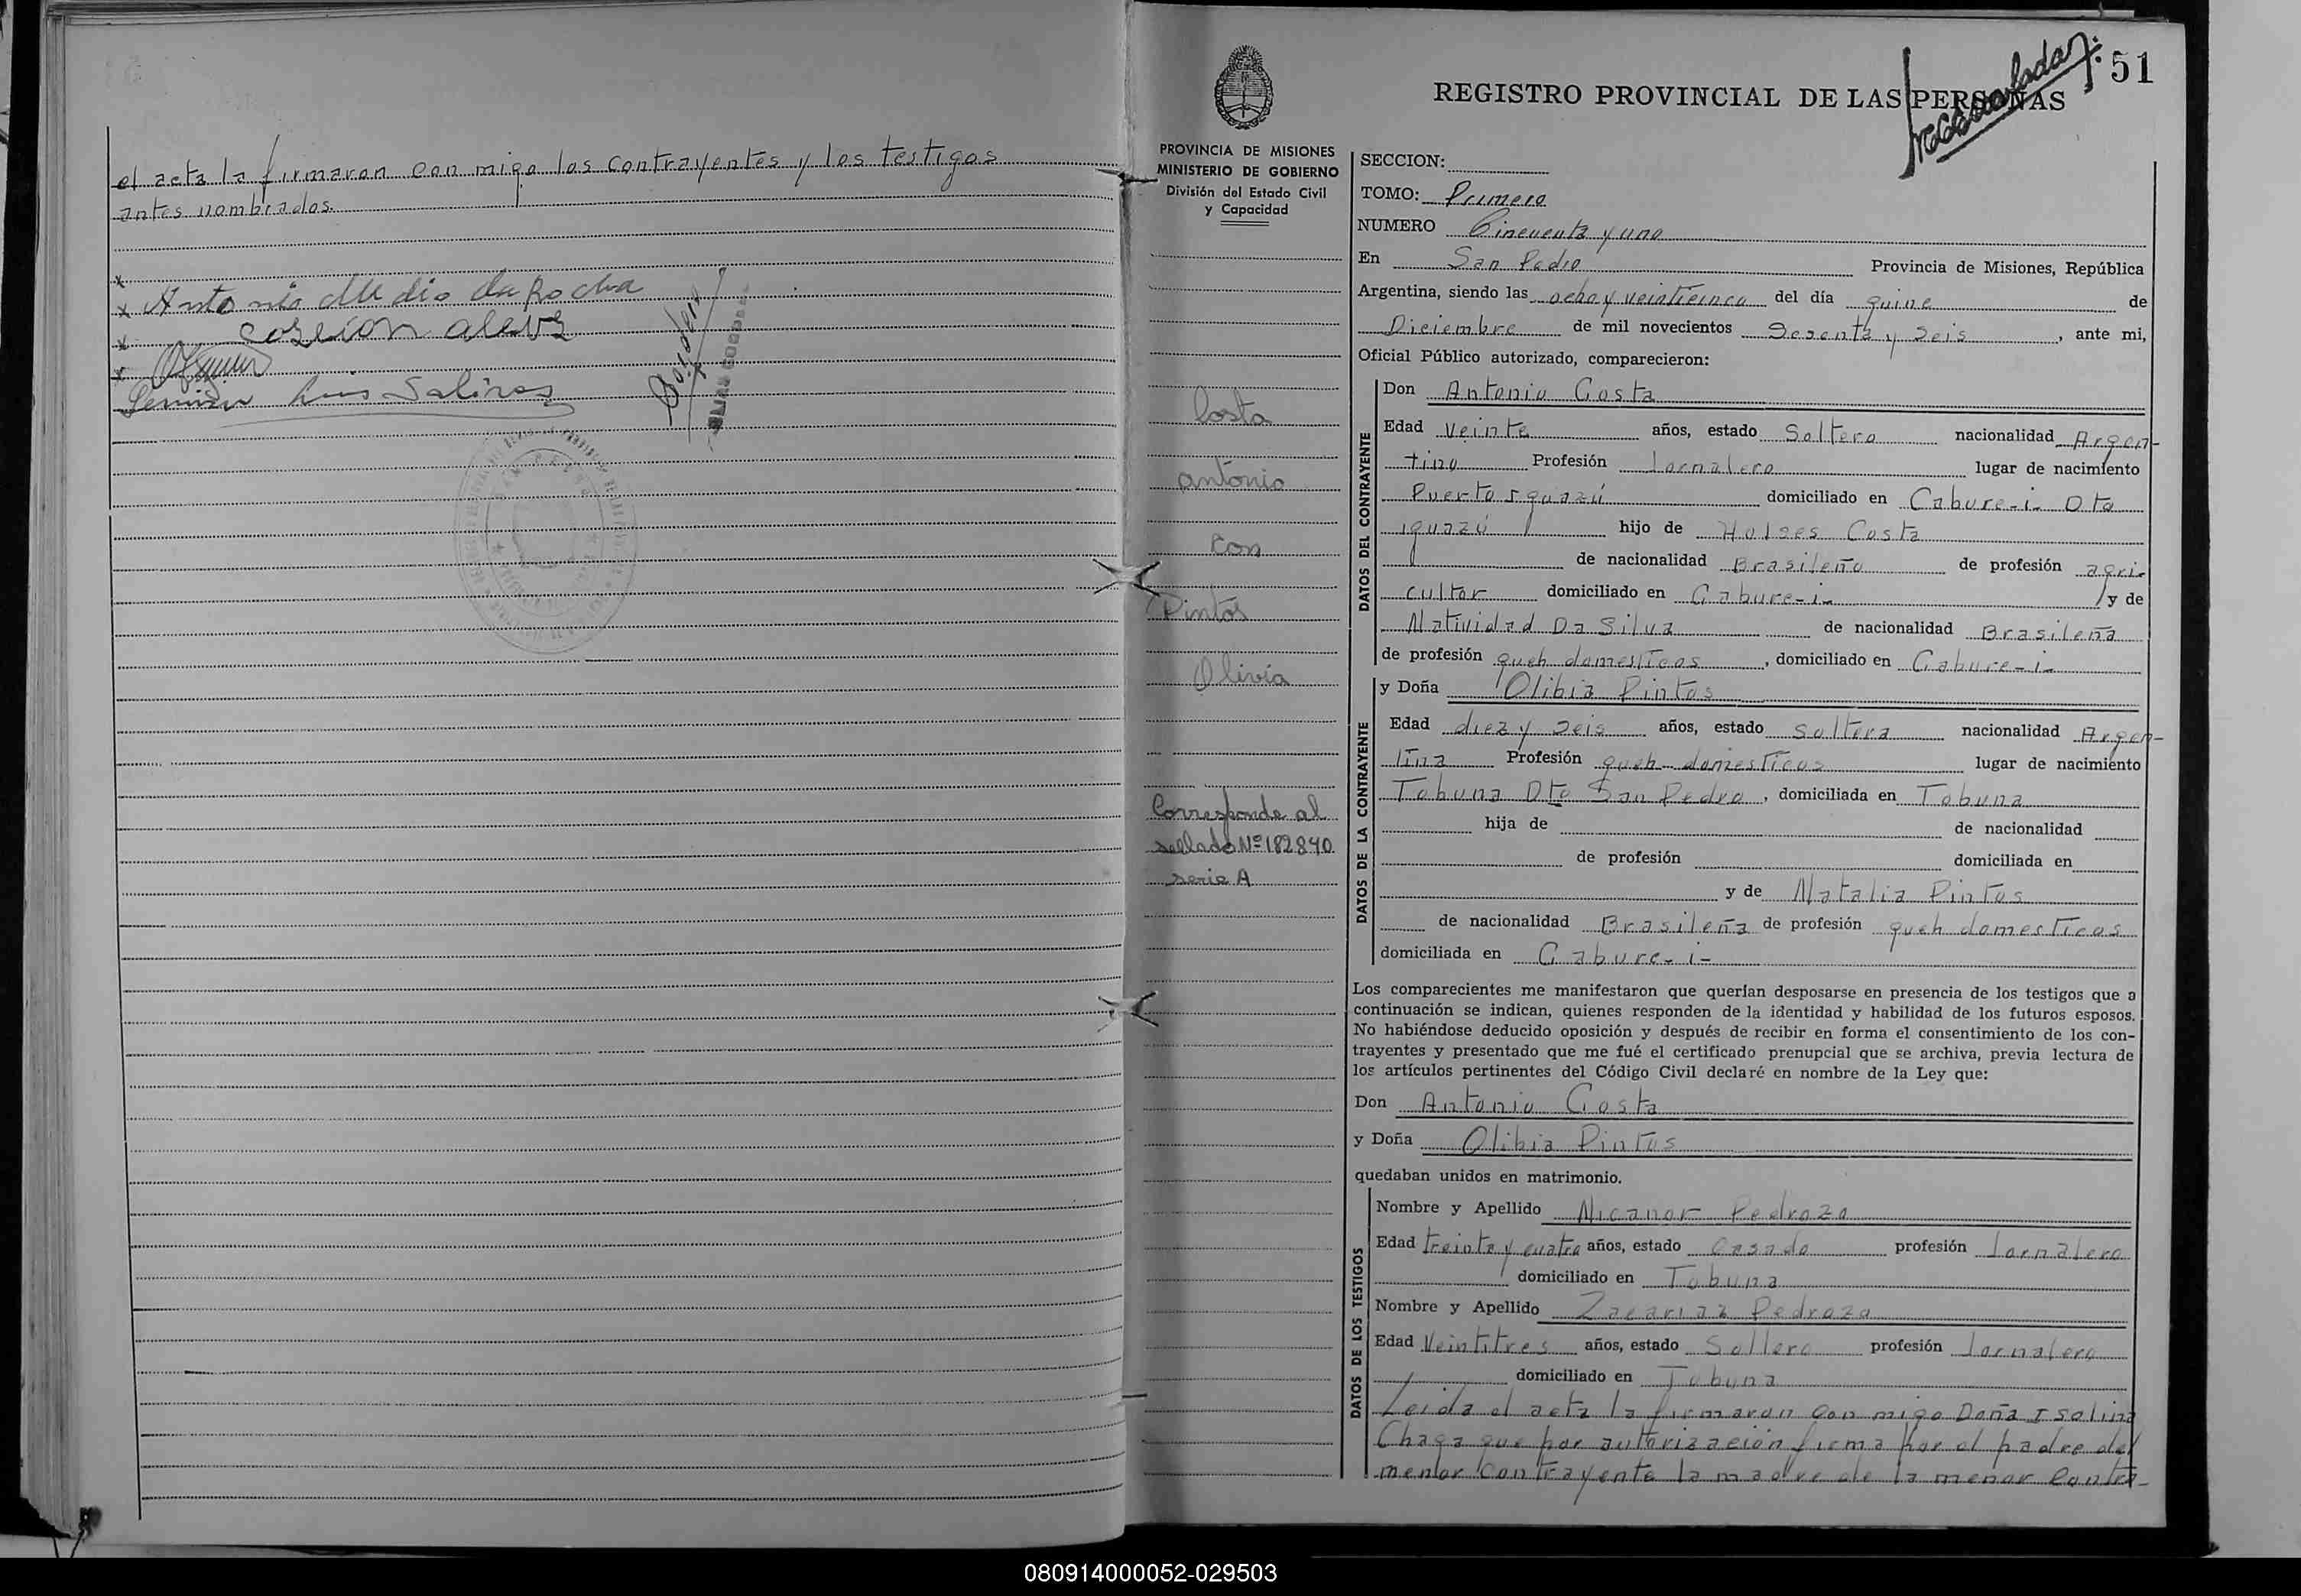 el acta la firmaron con migo los contrayentes y los testigos
antes nombrados.
x
x Antonio da Rocha
x
x
Luis Salinas
51
REGISTRO PROVINCIAL DE LAS PERSONAS
PROVINCIA DE MISIONES
MINISTERIO DE GOBIERNO
División del Estado Civil
y Capacidad
Costa
Antonio
con
Pintos
Olivia
Corresponde al
sellado Nº 182840
serie A
SECCION:
TOMO: Primero
NUMERO Cincuenta y uno
En San Pedro Provincia de Misiones, República
Argentina, siendo las ocho y veinticinco del día quine de
Diciembre de mil novecientos Sesenta y seis, ante mi,
Oficial Público autorizado, comparecieron:
DATOS DEL CONTRAYENTE
Don Antonio Costa
Edad veinte años, estado Soltero nacionalidad Argen-
tino Profesión Jornalero lugar de nacimiento
Puerto Iguazú domiciliado en Cabure-i- Dto
iguazú hijo de Moises Costa
de nacionalidad Brasileño de profesión agri-
cultor domiciliado en Cabure-i- y de
Natividad Da Silva de nacionalidad Brasileña
de profesión queh domesticos, domiciliado en Cabure-i-
DATOS DE LA CONTRAYENTE
y Doña Olibia Pintos
Edad diez y seis años, estado soltera nacionalidad Argen-
tina Profesión queh domesticos lugar de nacimiento
Tobuna Dto San Pedro, domiciliada en Tobuna
hija de de nacionalidad
de profesión domiciliada en
y de Natalia Pintos
de nacionalidad Brasileña de profesión queh domesticos
domiciliada en Cabure-i-
Los comparecientes me manifestaron que querían desposarse en presencia de los testigos que a
continuación se indican, quienes responden de la identidad y habilidad de los futuros esposos.
No habiéndose deducido oposición y después de recibir en forma el consentimiento de los con-
trayentes y presentado que me fué el certificado prenupcial que se archiva, previa lectura de
los artículos pertinentes del Código Civil declaré en nombre de la Ley que:
Don Antonio Costa
y Doña Olibia Pintos
quedaban unidos en matrimonio.
DATOS DE LOS TESTIGOS
Nombre y Apellido Nicanor Pedrozo
Edad treinta y cuatro años, estado Casado profesión Jornalero
domiciliado en Tobuna
Nombre y Apellido Zacarias Pedrozo
Edad Veintitres años, estado Soltero profesión Jornalero
domiciliado en Tobuna
Leida el acta la firmaron con migo Doña Isolina
Chaga que por autorización firma por el padre del
menor contrayente la madre de la menor contra-
080914000052-029503